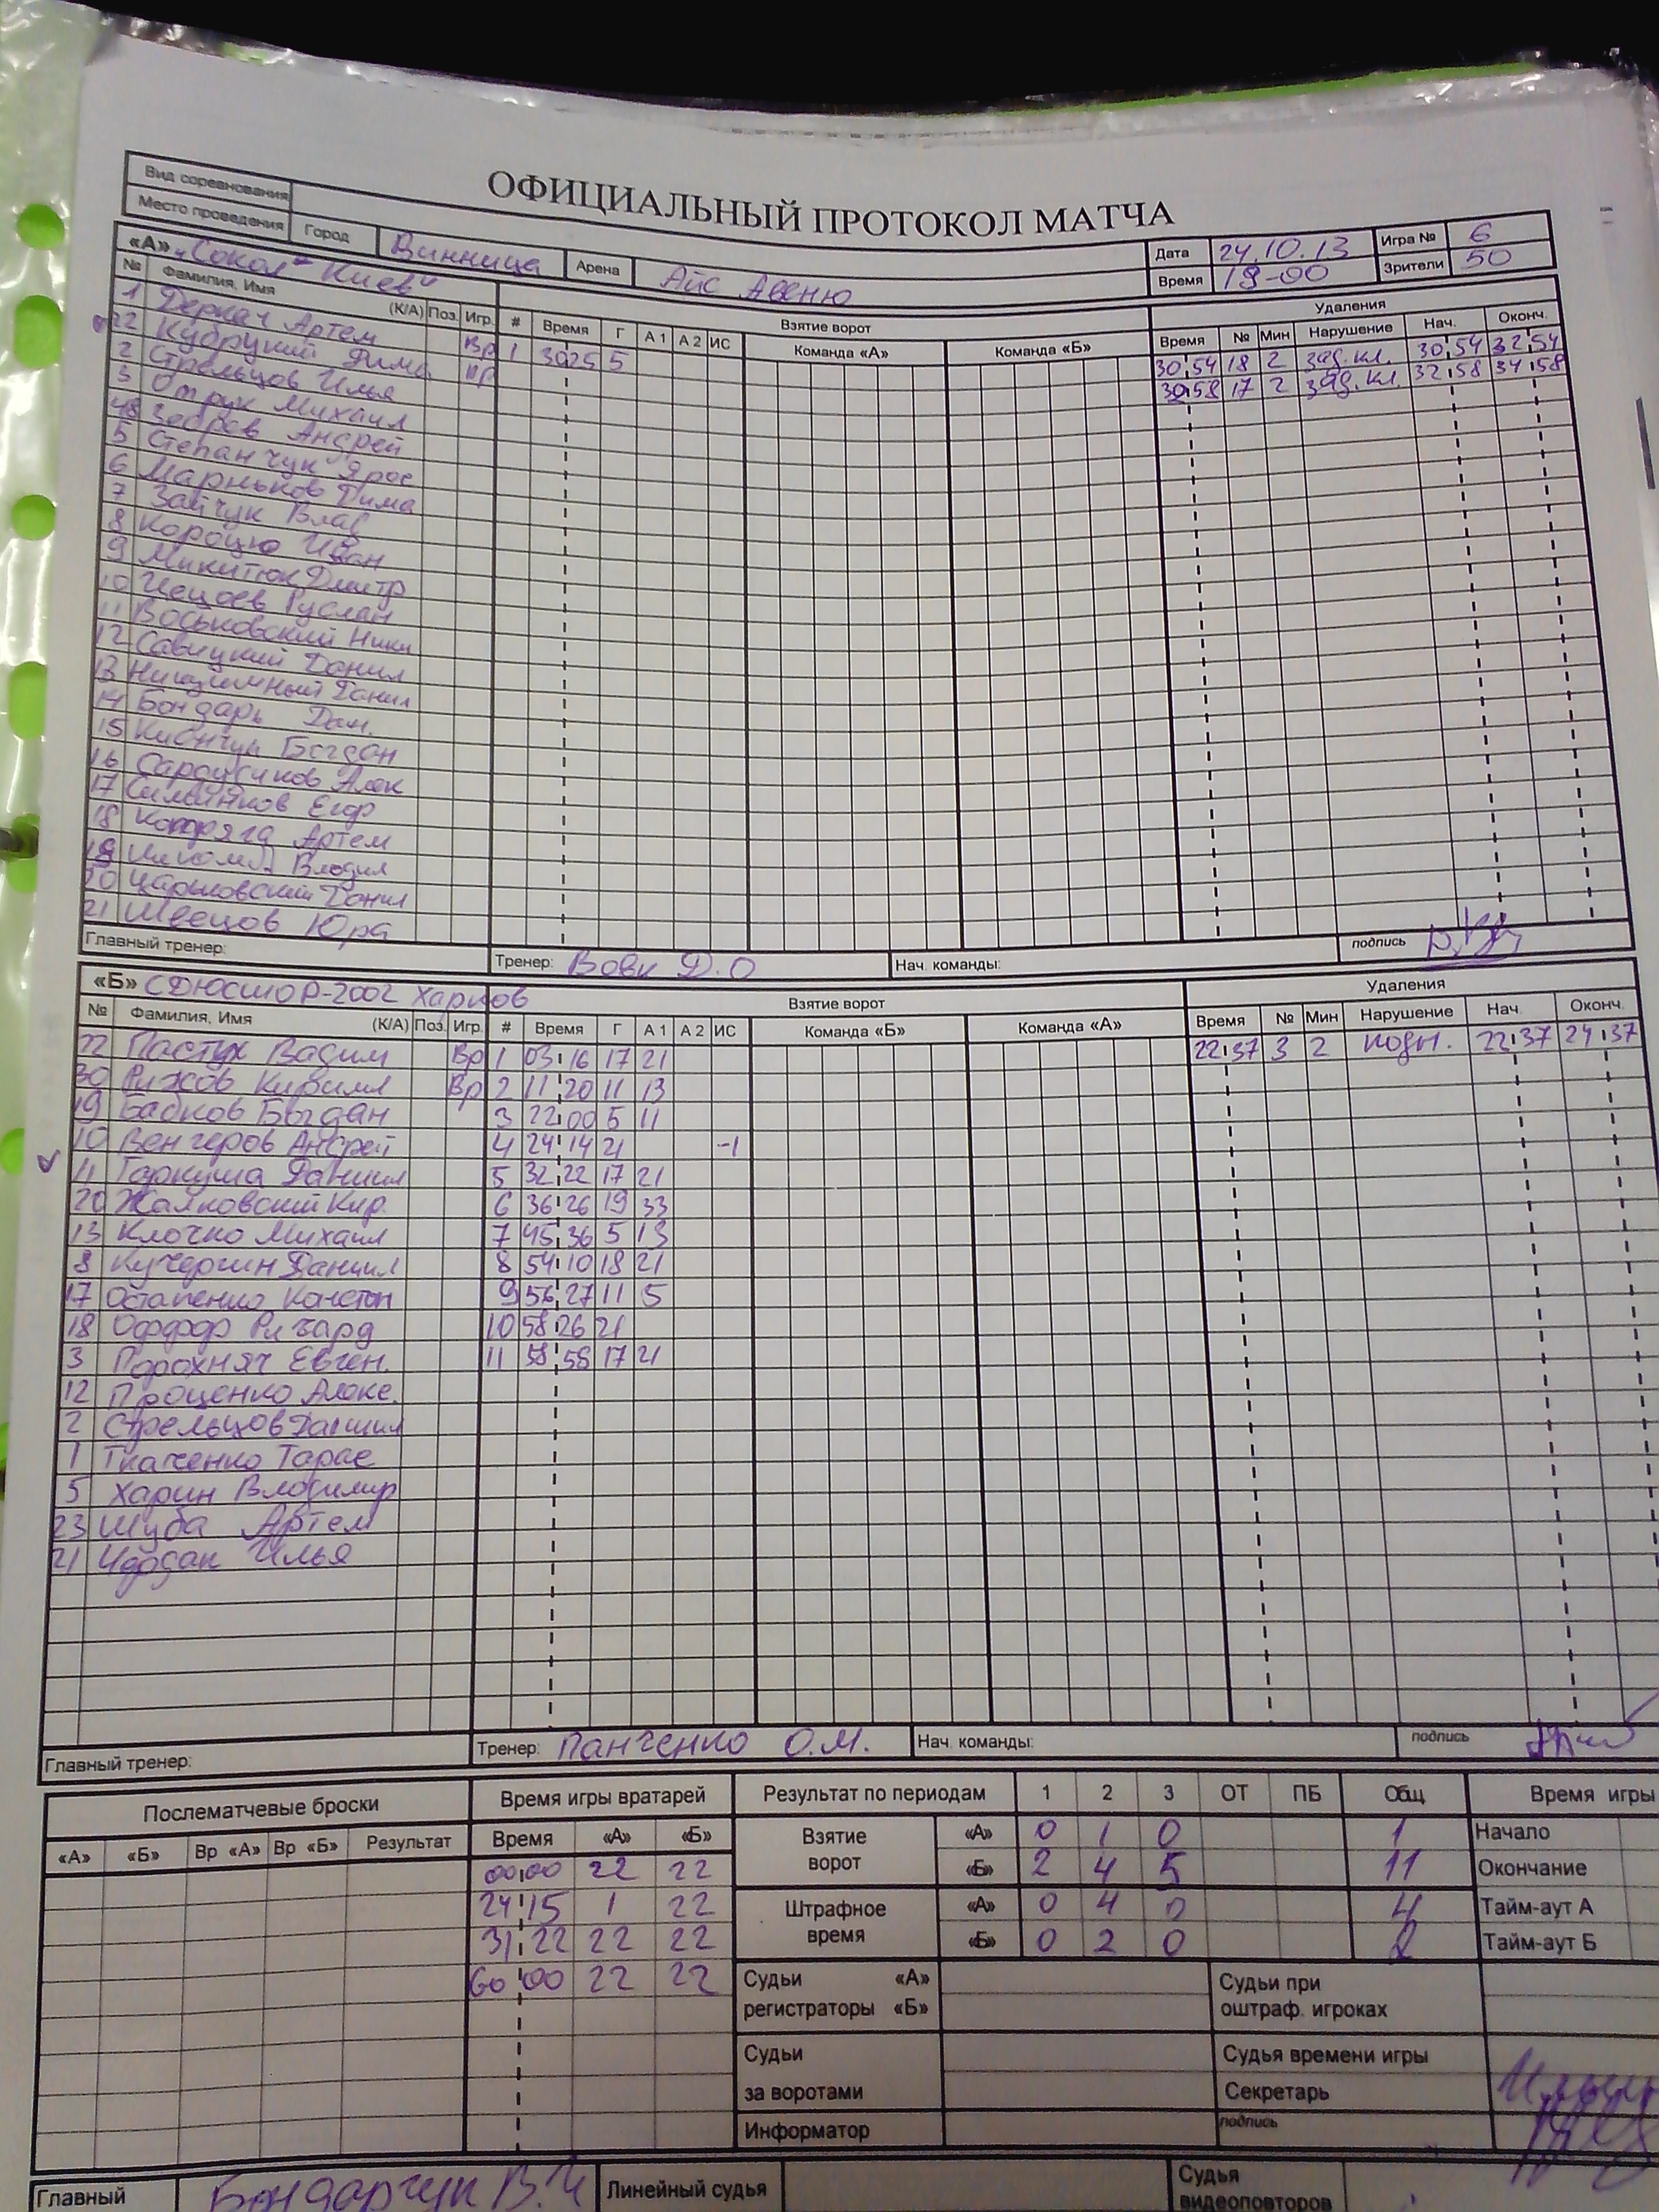 ОФИЦИАЛЬНЫЙ ПРОТОКОЛ МАТЧА
Вид соревнования
Место проведения Город Винница Арена Айс Авеню Дата 24.10.13 Игра № 6
Время 18-00 Зрители 50
«А» "Сокол - Киев" Взятие ворот Удаления
№ Фамилия, Имя (К/А) Поз. Игр. # Время Г А 1 А 2 ИС Команда «А» Команда «Б» Время № Мин Нарушение Нач. Оконч.
1 Деркач Артем Вр 1 30 25 5 30 54 18 2 зад. кл. 30 54 32 54
22 Кубруцкий Дима Вр 17 2 зад. кл. 32 58 34 58
2 Стрельцов Илья
3 Отрук Михаил
48 Андрей
5 Степанчук Ярос
6 Марньков Дима
7 Зайчук Влад
8 Иван
9 Микитюк Дмитр
10 Руслан
11 Воськовский Ники
12 Савицкий Данил
13 Данил
14 Бондарь Дан.
15 Богдан
16 Алек
17 Егор
18 Артем
19
20 Данил
21 Швецов Юра
Главный тренер: Тренер: Вовк Д.О Нач. команды: подпись
«Б» СДЮСШОР-2002 Харков Взятие ворот Удаления
№ Фамилия, Имя (К/А) Поз. Игр. # Время Г А 1 А 2 ИС Команда «Б» Команда «А» Время № Мин Нарушение Нач. Оконч.
22 Пастух Вадим Вр 1 03 16 17 21 22 37 3 2 подн. 22 37 24 37
30 Рижов Кирилл Вр 2 11 20 11 13
19 Бабков Богдан 3 22 00 5 11
10 Венгеров Андрей 4 24 14 21 -1
11 Гаркуша Даниил 5 32 22 17 21
20 Жаяковский Кир. 6 36 26 19 33
13 Клочко Михаил 7 45 36 5 13
8 Кучергин Даниил 8 54 10 18 21
17 Остапенко Констан 9 56 27 11 5
18 Оффор Ричард 10 58 26 21
3 Порохняч Евген. 11 58 58 17 21
12 Проценко Алекс.
2 Стрельцов Даниил
1 Ткаченко Тарас
5 Харин Владимир
23 Шуба Артем
21 Илья
Главный тренер: Тренер: Панченко О.М. Нач. команды: подпись
Послематчевые броски Время игры вратарей Результат по периодам 1 2 3 ОТ ПБ Общ Время игры
«А» «Б» Вр «А» Вр «Б» Результат Время «А» «Б» Взятие ворот «А» 0 1 0 1 Начало
00 00 22 22 «Б» 2 4 5 11 Окончание
24 15 1 22 Штрафное время «А» 0 4 0 4 Тайм-аут А
31 22 22 22 «Б» 0 2 0 2 Тайм-аут Б
60 00 22 22 Судьи «А» Судьи при
регистраторы «Б» оштраф. игроках
Судьи Судья времени игры
за воротами Секретарь
Информатор подпись
Главный Бондарчук В. Линейный судья Судья
видеоповторов